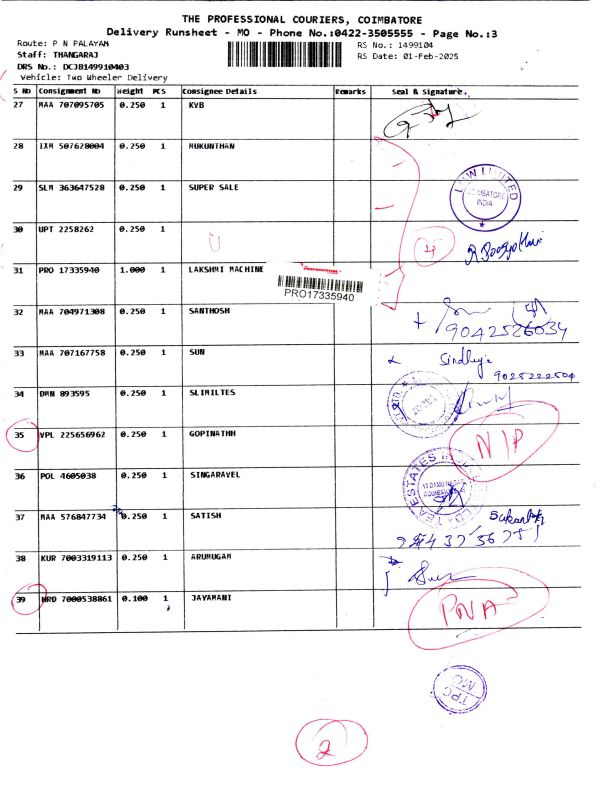 THE PROFESSIONAL COURIERS, COIMBATORE
Delivery Runsheet - MO - Phone No.:0422-3505555 - Page No.:3
Route: P N PALAYAM
RS No.: 1499104
Staff: THANGARAJ
RS Date: 01-Feb-2025
DRS No.: DCJB149910403
Vehicle: Two Wheeler Delivery
S No Consignment No Weight PCS Consignee Details Remarks Seal & Signature
27 MAA 707095705 0.250 1 KVB
28 IXM 507628004 0.250 1 MUKUNTHAN
29 SLM 363647528 0.250 1 SUPER SALE
LMW LIMITED
COIMBATORE
INDIA
30 UPT 2258262 0.250 1
4
31 PRO 17335940 1.000 1 LAKSHMI MACHINE
PRO17335940
32 MAA 704971308 0.250 1 SANTHOSH
9042526034
33 MAA 707167758 0.250 1 SUN
9025222504
34 DMN 893595 0.250 1 SLIMILTES
35 VPL 225656962 0.250 1 GOPINATHH
NIP
36 POL 4605038 0.250 1 SINGARAVEL
TEA ESTATES
37 MAA 576847734 0.250 1 SATISH
38 KUR 7003319113 0.250 1 ARUMUGAM
39 MRD 7000538861 0.100 1 JAYAMANI
PNA
TPC
MO
2